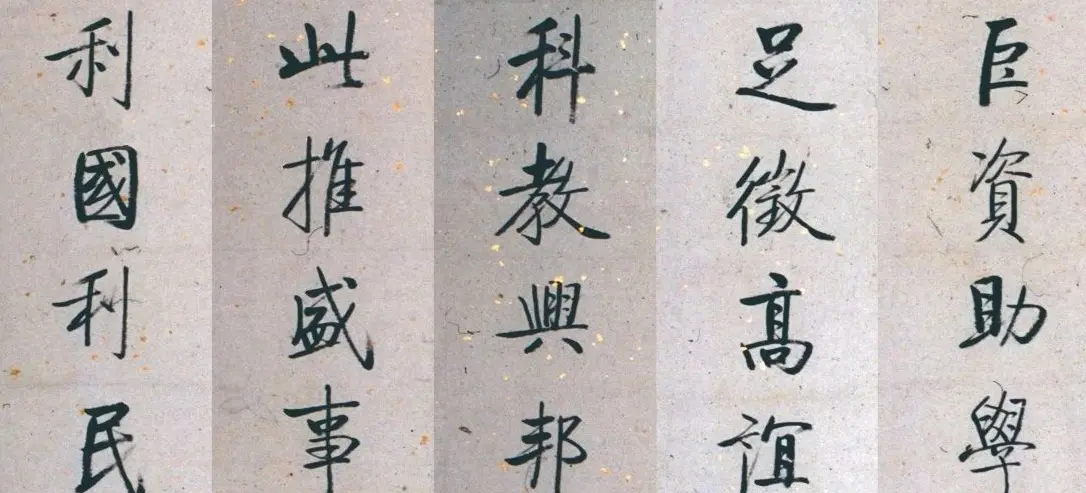 巨資助學
足徵高誼
科教興邦
此推盛事
利國利民